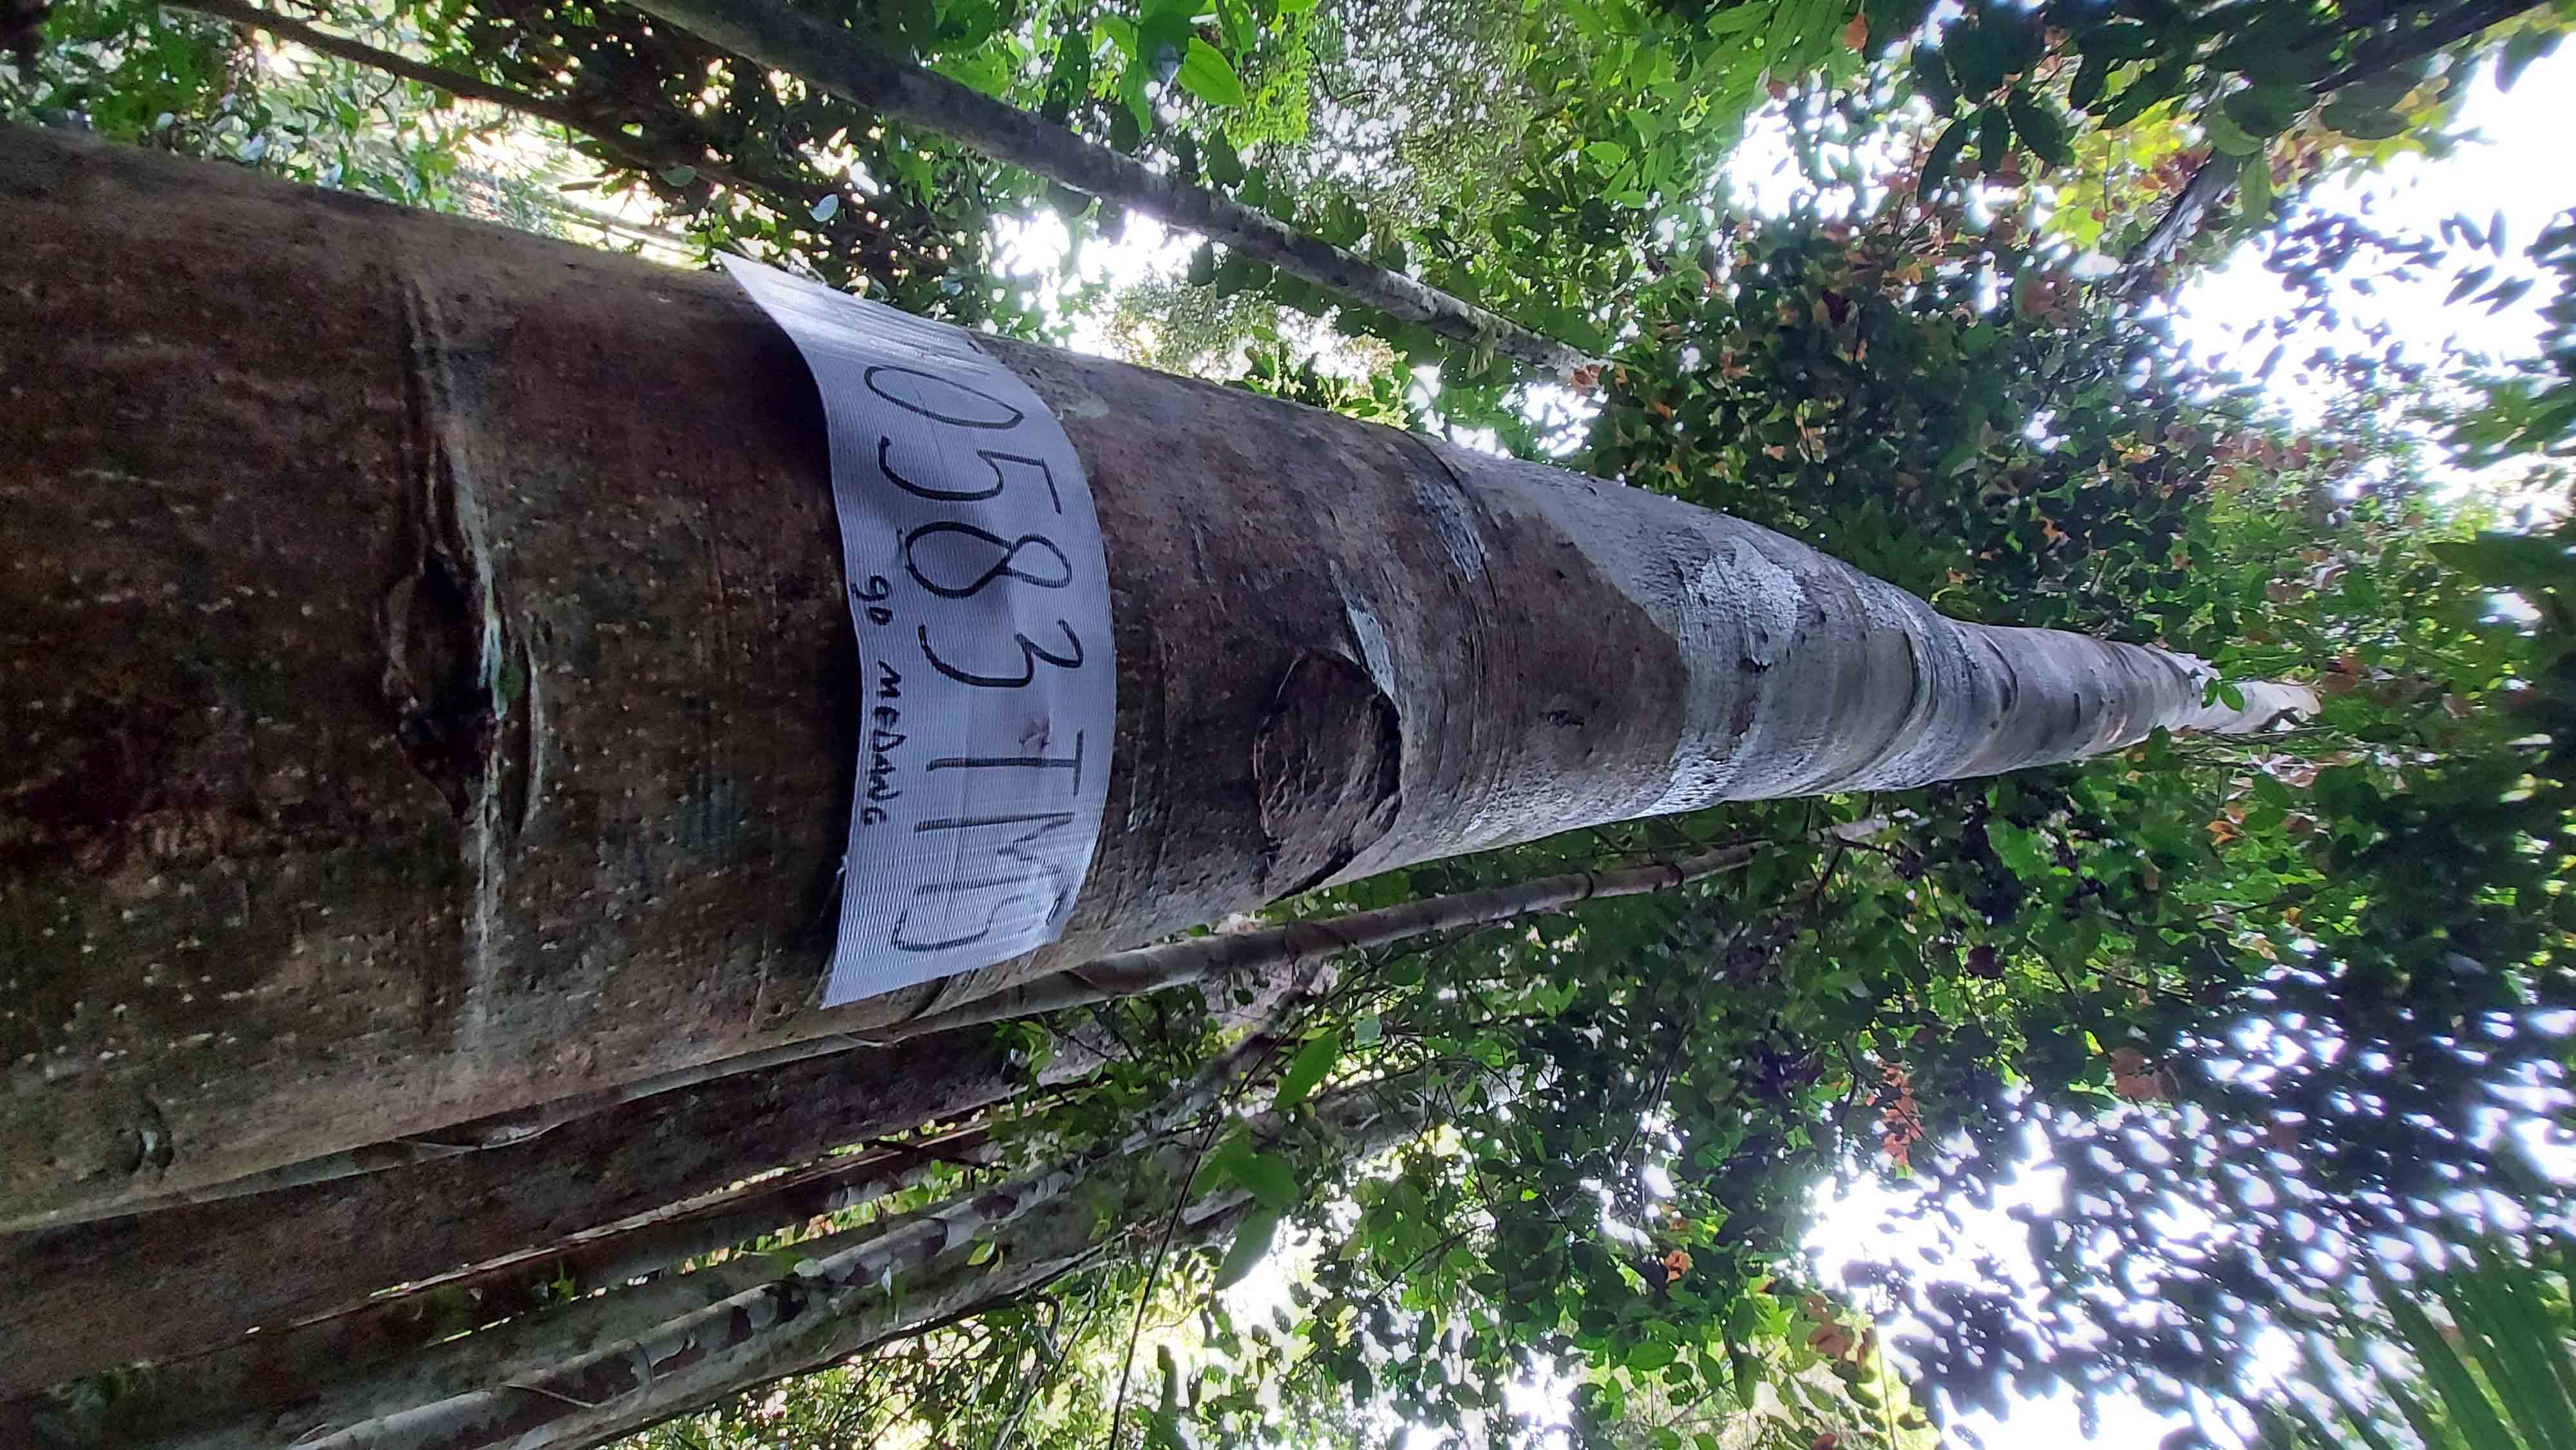 0583 IMTS
90 MEDANG